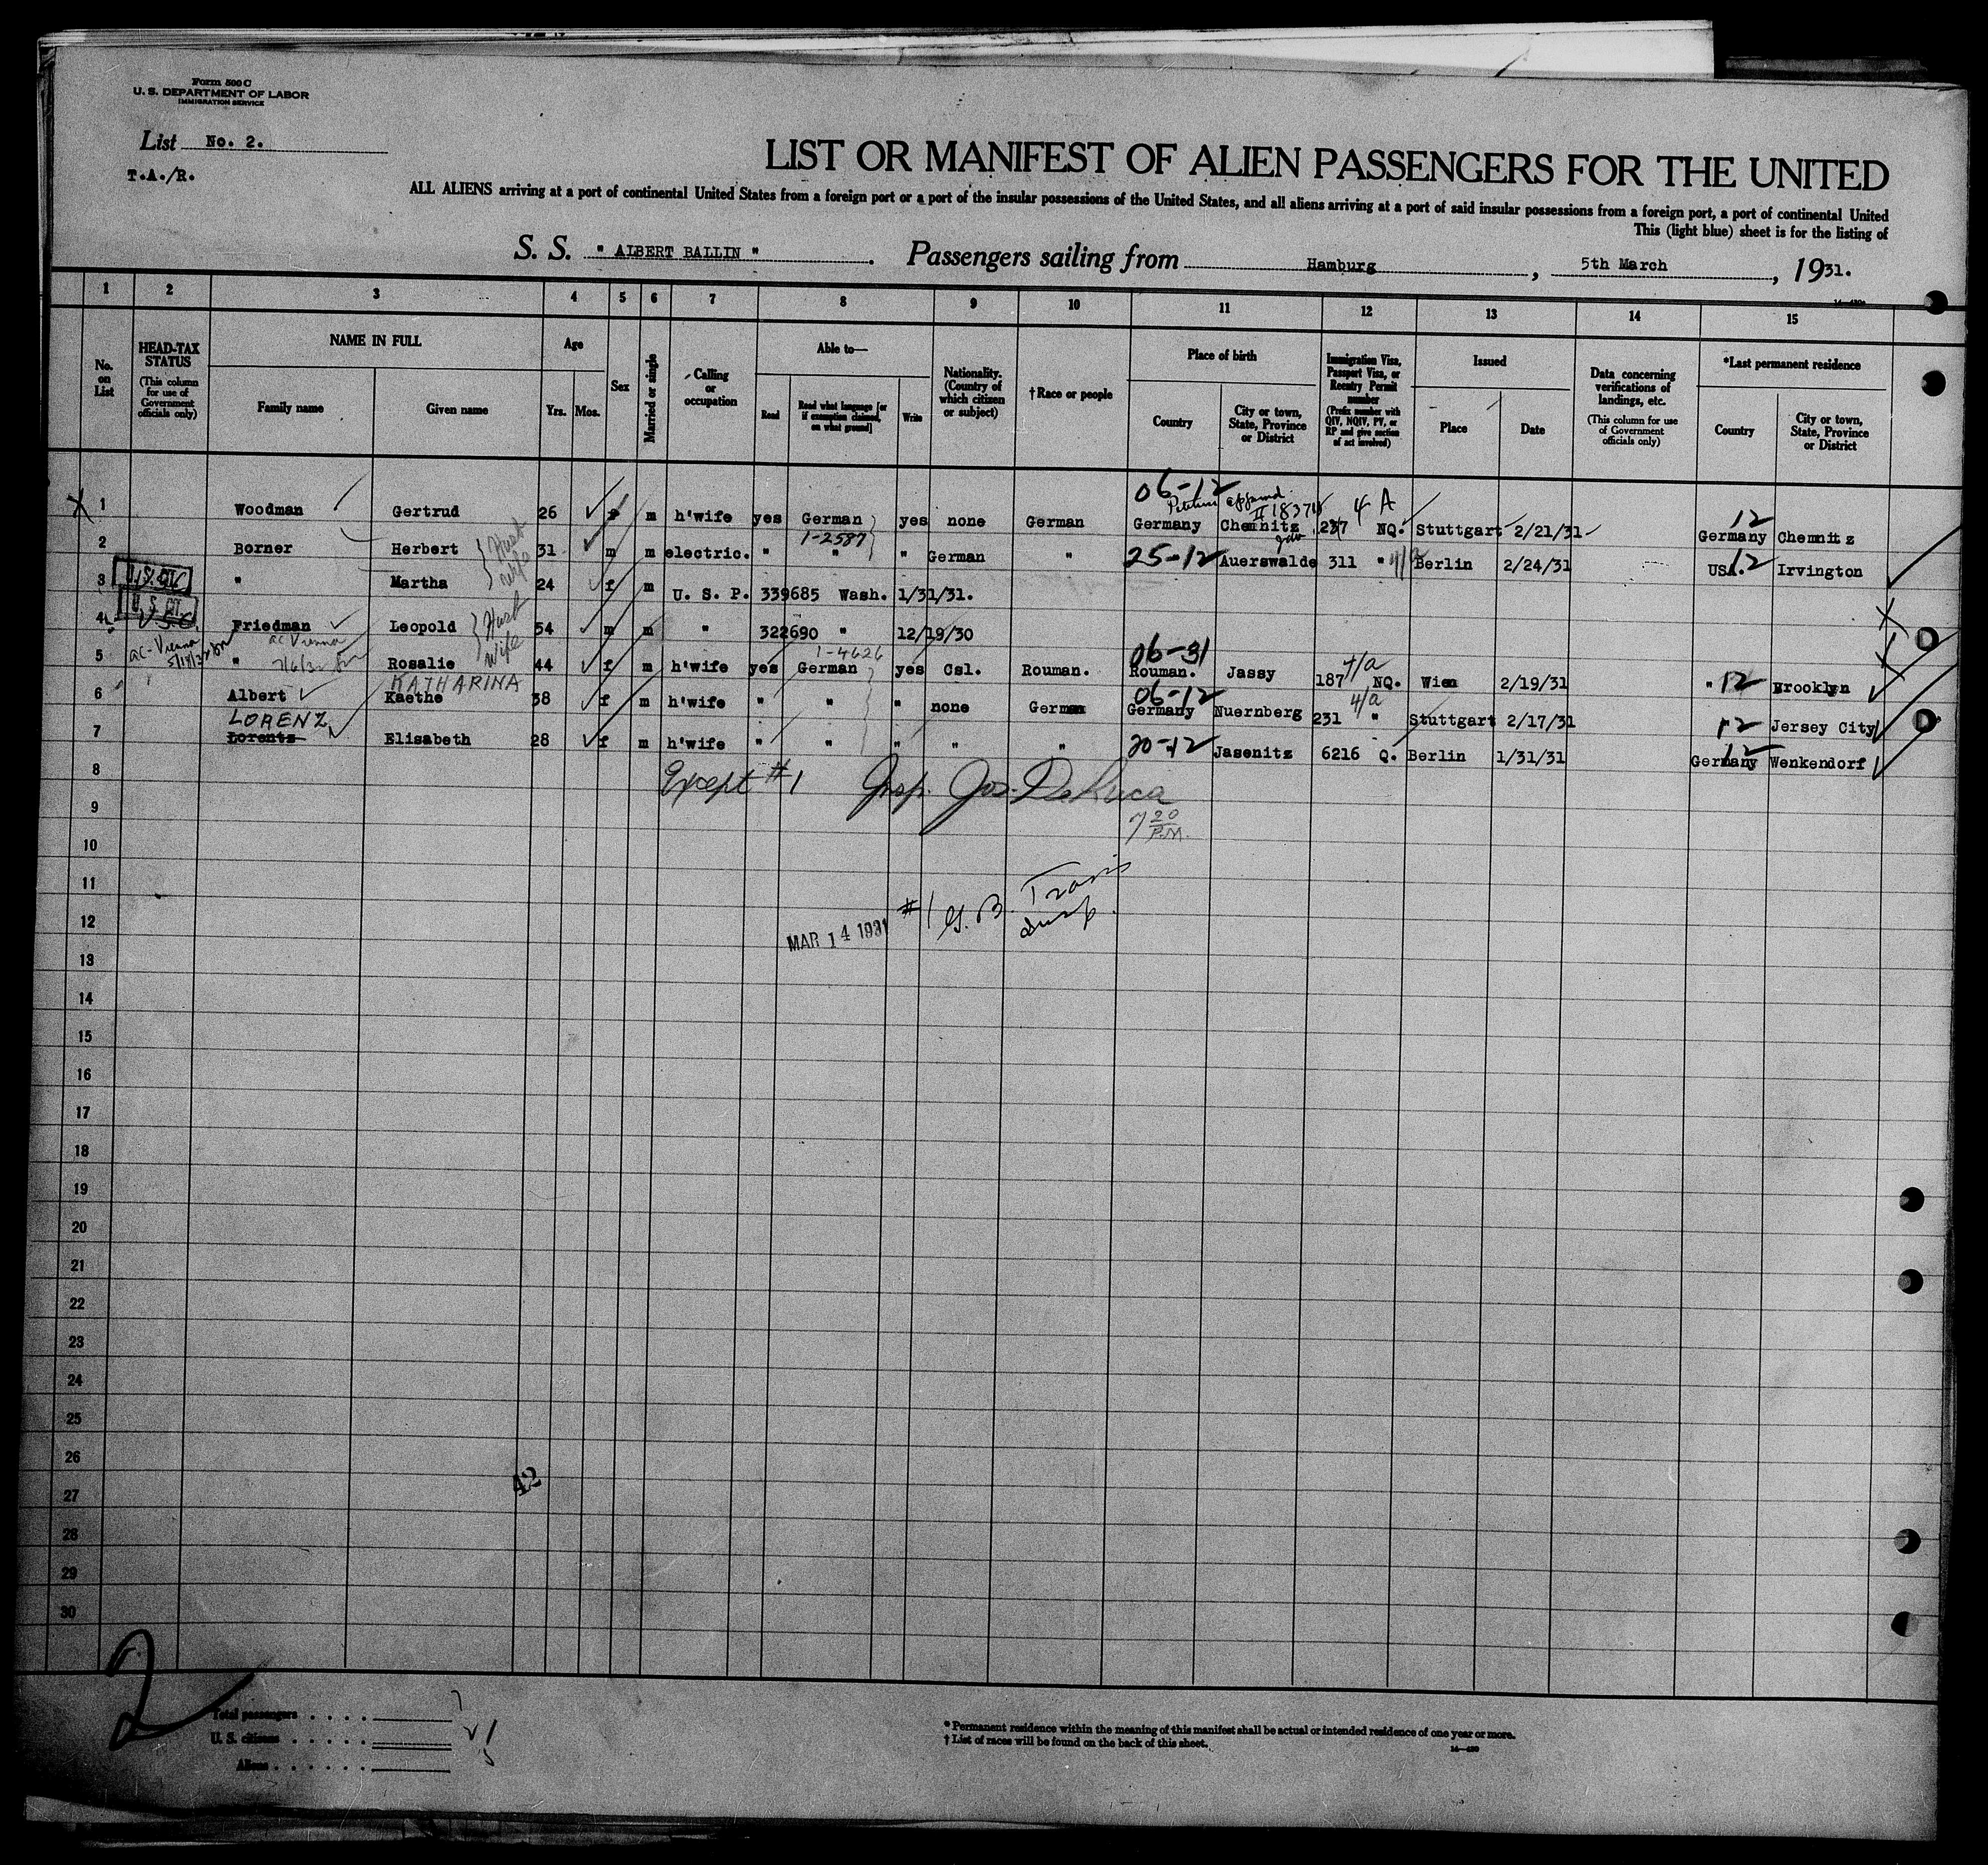 Form 500 C
U. S. DEPARTMENT OF LABOR
IMMIGRATION SERVICE
List No. 2.
T.A./R.
LIST OR MANIFEST OF ALIEN PASSENGERS FOR THE UNITED
ALL ALIENS arriving at a port of continental United States from a foreign port or a port of the insular possessions of the United States, and all aliens arriving at a port of said insular possessions from a foreign port, a port of continental United
This (light blue) sheet is for the listing of
S. S. " ALBERT BALLIN " . Passengers sailing from Hamburg , 5th March , 1931.
1 2 3 4 5 6 7 8 9 10 11 12 13 14 15
No. on List
HEAD-TAX STATUS (This column for use of Government officials only)
NAME IN FULL Family name Given name
Age Yrs. Mos.
Sex
Married or single
Calling or occupation
Able to— Read Read what language [or if exemption claimed, on what ground] Write
Nationality. (Country of which citizen or subject)
† Race or people
Place of birth Country City or town, State, Province or District
Immigration Visa, Passport Visa, or Reentry Permit number (Prefix number with QIV, NQIV, PV, or RP and give section of act involved)
Issued Place Date
Data concerning verifications of landings, etc. (This column for use of Government officials only)
*Last permanent residence Country City or town, State, Province or District
06-12 4 A 12
1 Woodman Gertrud 26 f m h'wife yes German yes none German Germany Chemnitz 237 NQ. Stuttgart 2/21/31 Germany Chemnitz
1-2587
2 Borner Herbert 31 m m electric. " " " German " 25-12 Auerswalde 311 " 4/a Berlin 2/24/31 USA. 12 Irvington
Husb wife
3 U.S. CIT. " Martha 24 f m U. S. P. 339685 Wash. 1/31/31.
U.S. CIT.
4 U.S.C. Friedman Leopold 54 m m " 322690 " 12/19/30
Husb wife
ac-Vienna ac Vienna 1-4626 06-31 4/a
5 " Rosalie 44 f m h'wife yes German yes Csl. Rouman. Rouman. Jassy 187 NQ. Wien 2/19/31 " 12 Brooklyn
KATHARINA 06-12 4/a
6 Albert Kaethe 38 f m h'wife " " " none German Germany Nuernberg 231 " Stuttgart 2/17/31 " 12 Jersey City
LORENZ
7 Lorentz Elisabeth 28 f m h'wife " " " " " 20-12 Jasenitz 6216 Q. Berlin 1/31/31 Germany 12 Wenkendorf
8 Except #1 Insp. Jos. DeLuca
9 7 20 P.M.
10
11
12 MAR 14 1931 #1 G. B. Travis Insp.
13
14
15
16
17
18
19
20
21
22
23
24
25
26
42
27
28
29
30
2
Total passengers . . . . 7
U. S. citizens . . . . . 2
Aliens . . . . . . 5
* Permanent residence within the meaning of this manifest shall be actual or intended residence of one year or more.
† List of races will be found on the back of this sheet.